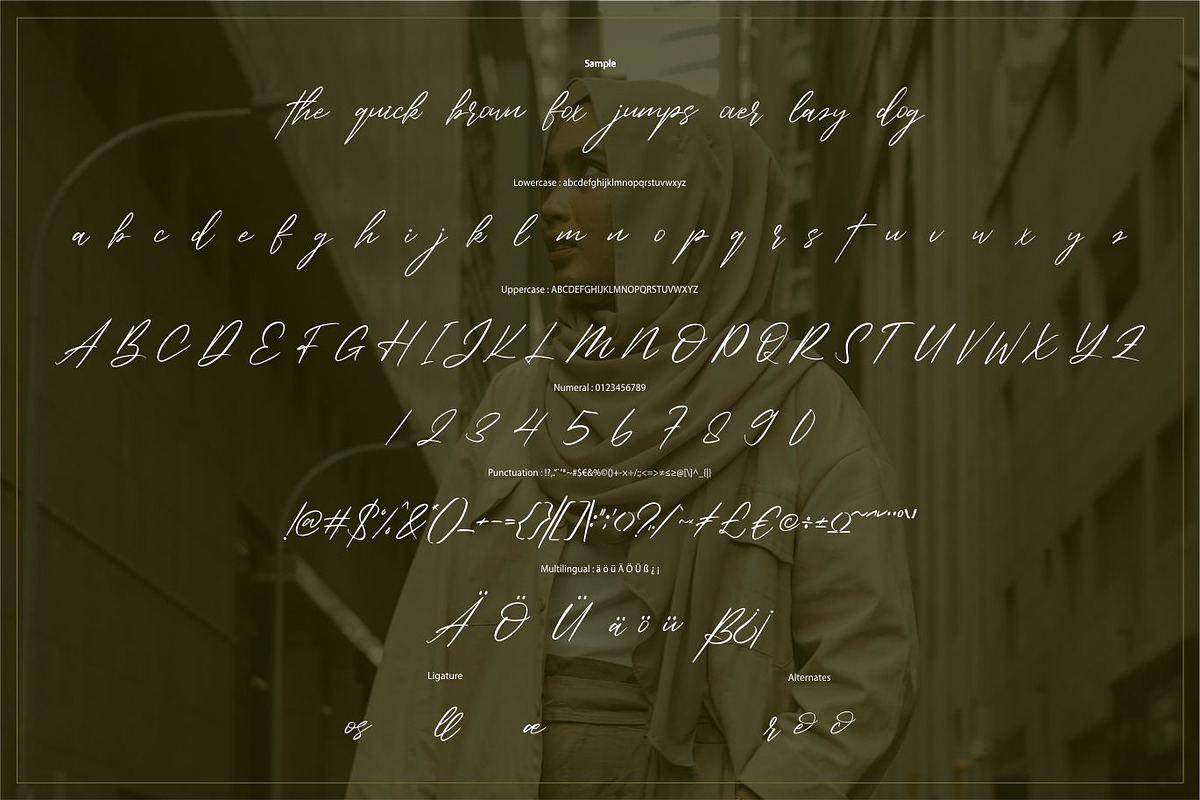 Sample
the quick brown fox jumps oer lazy dog
Lowercase : abcdefghijklmnopqrstuvwxyz
a b c d e f g h i j k l m n o p q r s t u v w x y z
Uppercase : ABCDEFGHIJKLMNOPQRSTUVWXYZ
A B C D E F G H I J K L M N O P Q R S T U V W X Y Z
Numeral : 0123456789
1 2 3 4 5 6 7 8 9 0
Punctuation :
Multilingual : ä ö ü Ä Ö Ü ß ¿ ¡
Ä Ö Ü ä ö ü ß¿¡
Ligature Alternates
os ll æ r